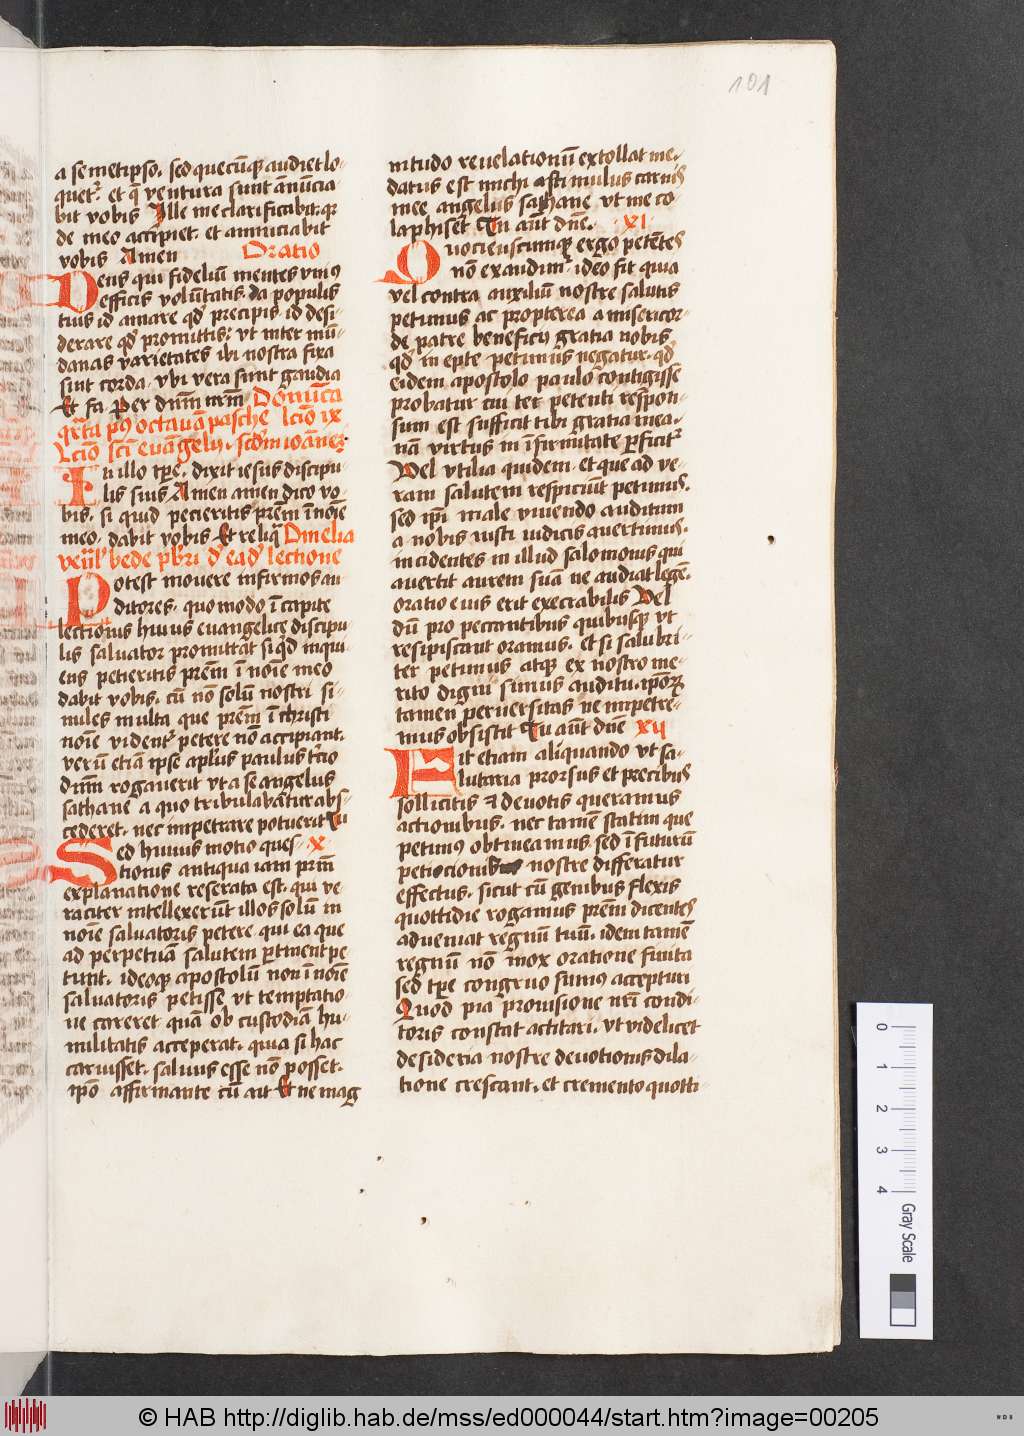 101
a semetipso. sed quecūqꝫ audiet lo-
quetʳ. et q̄ ventura sunt ānūcia-
bit vobis Ille me clarificabit. qꝛ
de meo accipiet. et annuciabit
vobis Amen Oratio
Deus qui fideliū mentes vniꝰ
efficis volūtatis. da populis
tuis id amare qđ precipis. id desi-
derare qđ promittis: vt inter mū-
danas varietates ibi nostra fixa
sint corda. vbi vera sunt gaudia
Et fa Per dnm nrm Domīca
qrta pꝰ octauā pasche lcio ix
Lcio sci euāgelij. scdm ioānez.
In illo tpe. dixit iesus discipu-
lis suis Amen amen dico vo-
bis. si quid pecieritis prēm ī noīe
meo. dabit vobis Et reliq̄ Omelia
veīlꝭ bede pbri đ eađ lectione
Potest mouere infirmos au
ditores. quomodo ī capite
lectionis huius euangelice discipu
lis saluator promittāt si qđ inqui
ens petieritis prēm ī noīe meo
dabit vobis. cū nō solū nostri si-
miles multa que prēm ī christi
noīe videntʳ petere nō accipiant.
verū etiā ipse aplus paulus tcio
dnm rogauerit vt a se angelus
sathane a quo tribulabātur abs-
cederet. nec impetrare potuerit Tu
Sed huius motio ques- x
tionis antiqua iam prm̄
explanatione reserata est. qui ve
raciter intellexerūt illos solū in
noīe saluatoris petere. qui ea que
ad perpetuā salutem ptinent pe
tunt. ideoqꝫ apostolū non ī noīe
saluatoris petisse vt temptatio-
ne careret quā ob custodiā hu-
militatis acceperat. quia si hac
caruisset. saluus esse nō posset.
ipo affirmante cū ait Et ne mag
nitudo reuelationū extollat me.
datus est michi a sti mulus carnis
mee angelus sathane vt me co
laphiset Tu aūt dne. XI
Quociensciimqꝫ ergo petētes
nō exaudimʳ. ideo fit quia
vel contra auxiliū nostre salutis
petimus ac propterea a misericor-
de patre beneficij gratia nobis
qđ in epte petimus negatur. qđ
eidem apostolo paulo contigisse
probatur cui ter petenti respon-
sum est sufficit tibi gratia mea.
nā virtus in īfirmitate pficitʳ
Vel vtilia quidem. et que ad ve-
ram salutem respiciūt petimus.
sed ipi male viuendo auditum
a nobis iusti iudicis auertimus.
incidentes in illud salomonis qui
auertit aurem suā ne audiat legē.
oratio eius erit execrabilis Vel
dū pro peccantibus quibusqꝫ vt
resipiscant oramus. et si salubri-
ter petimus atqꝫ ex nostro me-
rito digni simus auditu. ipoꝝ
tamen peruersitas ne impetre-
mus obsistit Tu aūt dne xij
Fit etiam aliquando vt sa-
lutaria prorsus et precibus
sollicitis ⁊ deuotis queramus
actionibus. nec tamē statim que
petimus obtineamus. sed ī futurū
peticionis nostre differatur
effectus. sicut cū genibus flexis
quottidie rogamus prēm dicentes
adueniat regnū tuū. idem tamē
regnū nō mox oratione finita
sed tpe congruo sumus accepturi
Quod pia prouisione nri condi-
toris constat actitari. vt videlicet
desideria nostre deuotionis dila-
tione crescant. et cremento quotti-
0 1 2 3 4
Gray Scale
© HAB http://diglib.hab.de/mss/ed000044/start.htm?image=00205